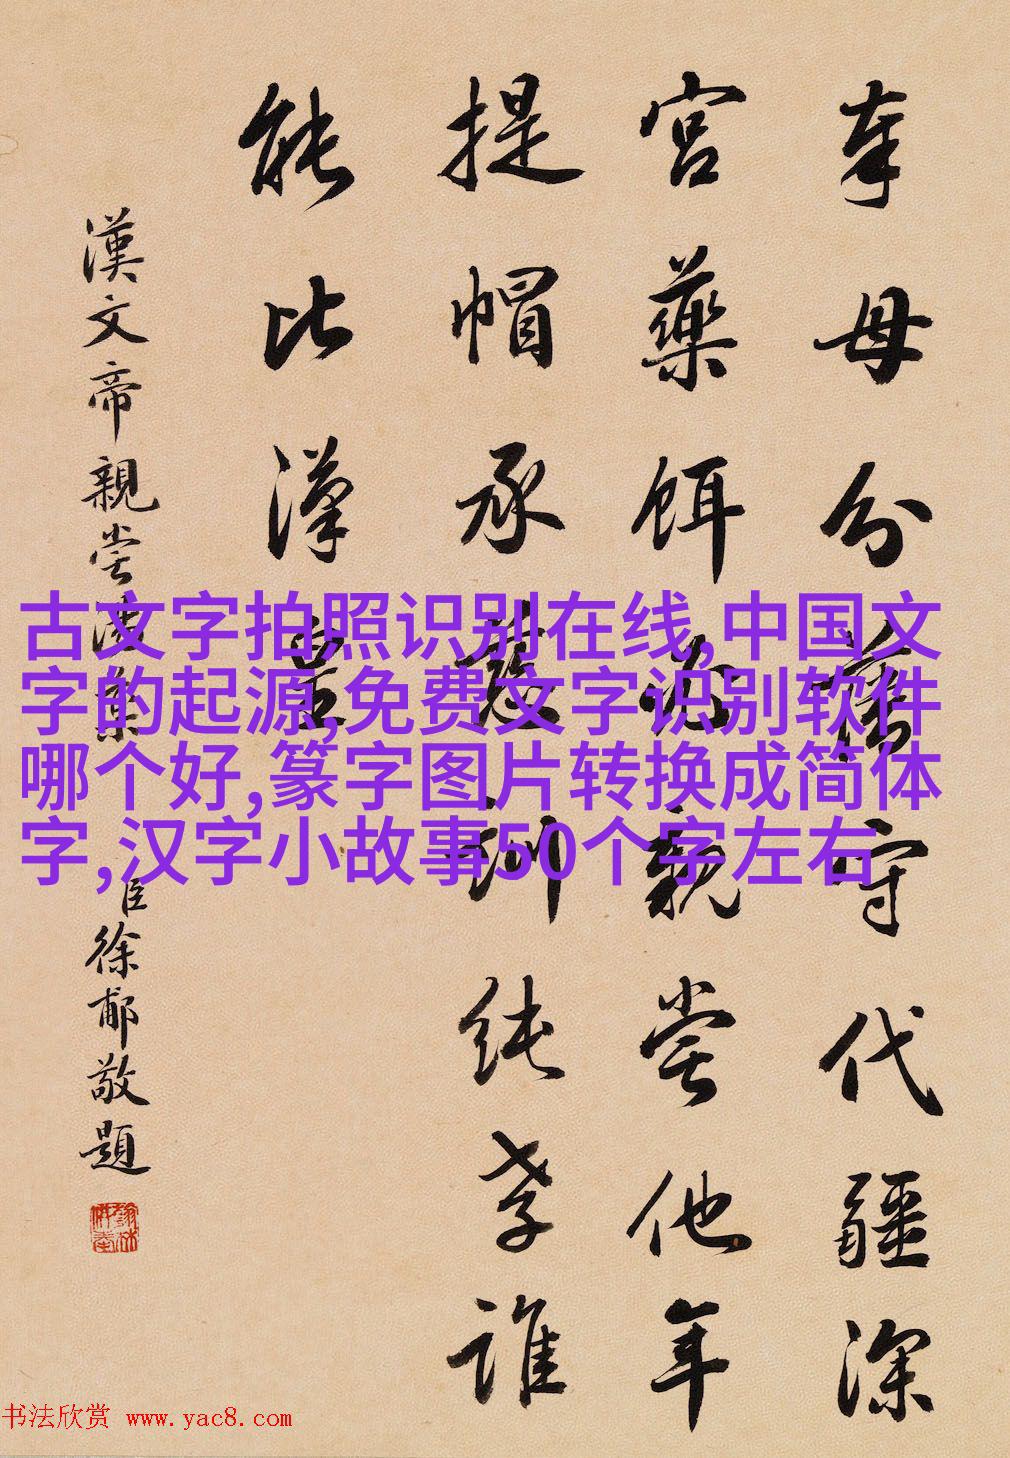 奉母分藩守代疆深
宮藥餌必親嘗他年
提帽承慈訓純孝誰
能比漢皇
漢文帝親嘗湯藥
臣徐郙敬題
古文字拍照识别在线,中国文
字的起源,免费文字识别软件
哪个好,篆字图片转换成简体
字,汉字小故事50个字左右
书法欣赏 www.yac8.com